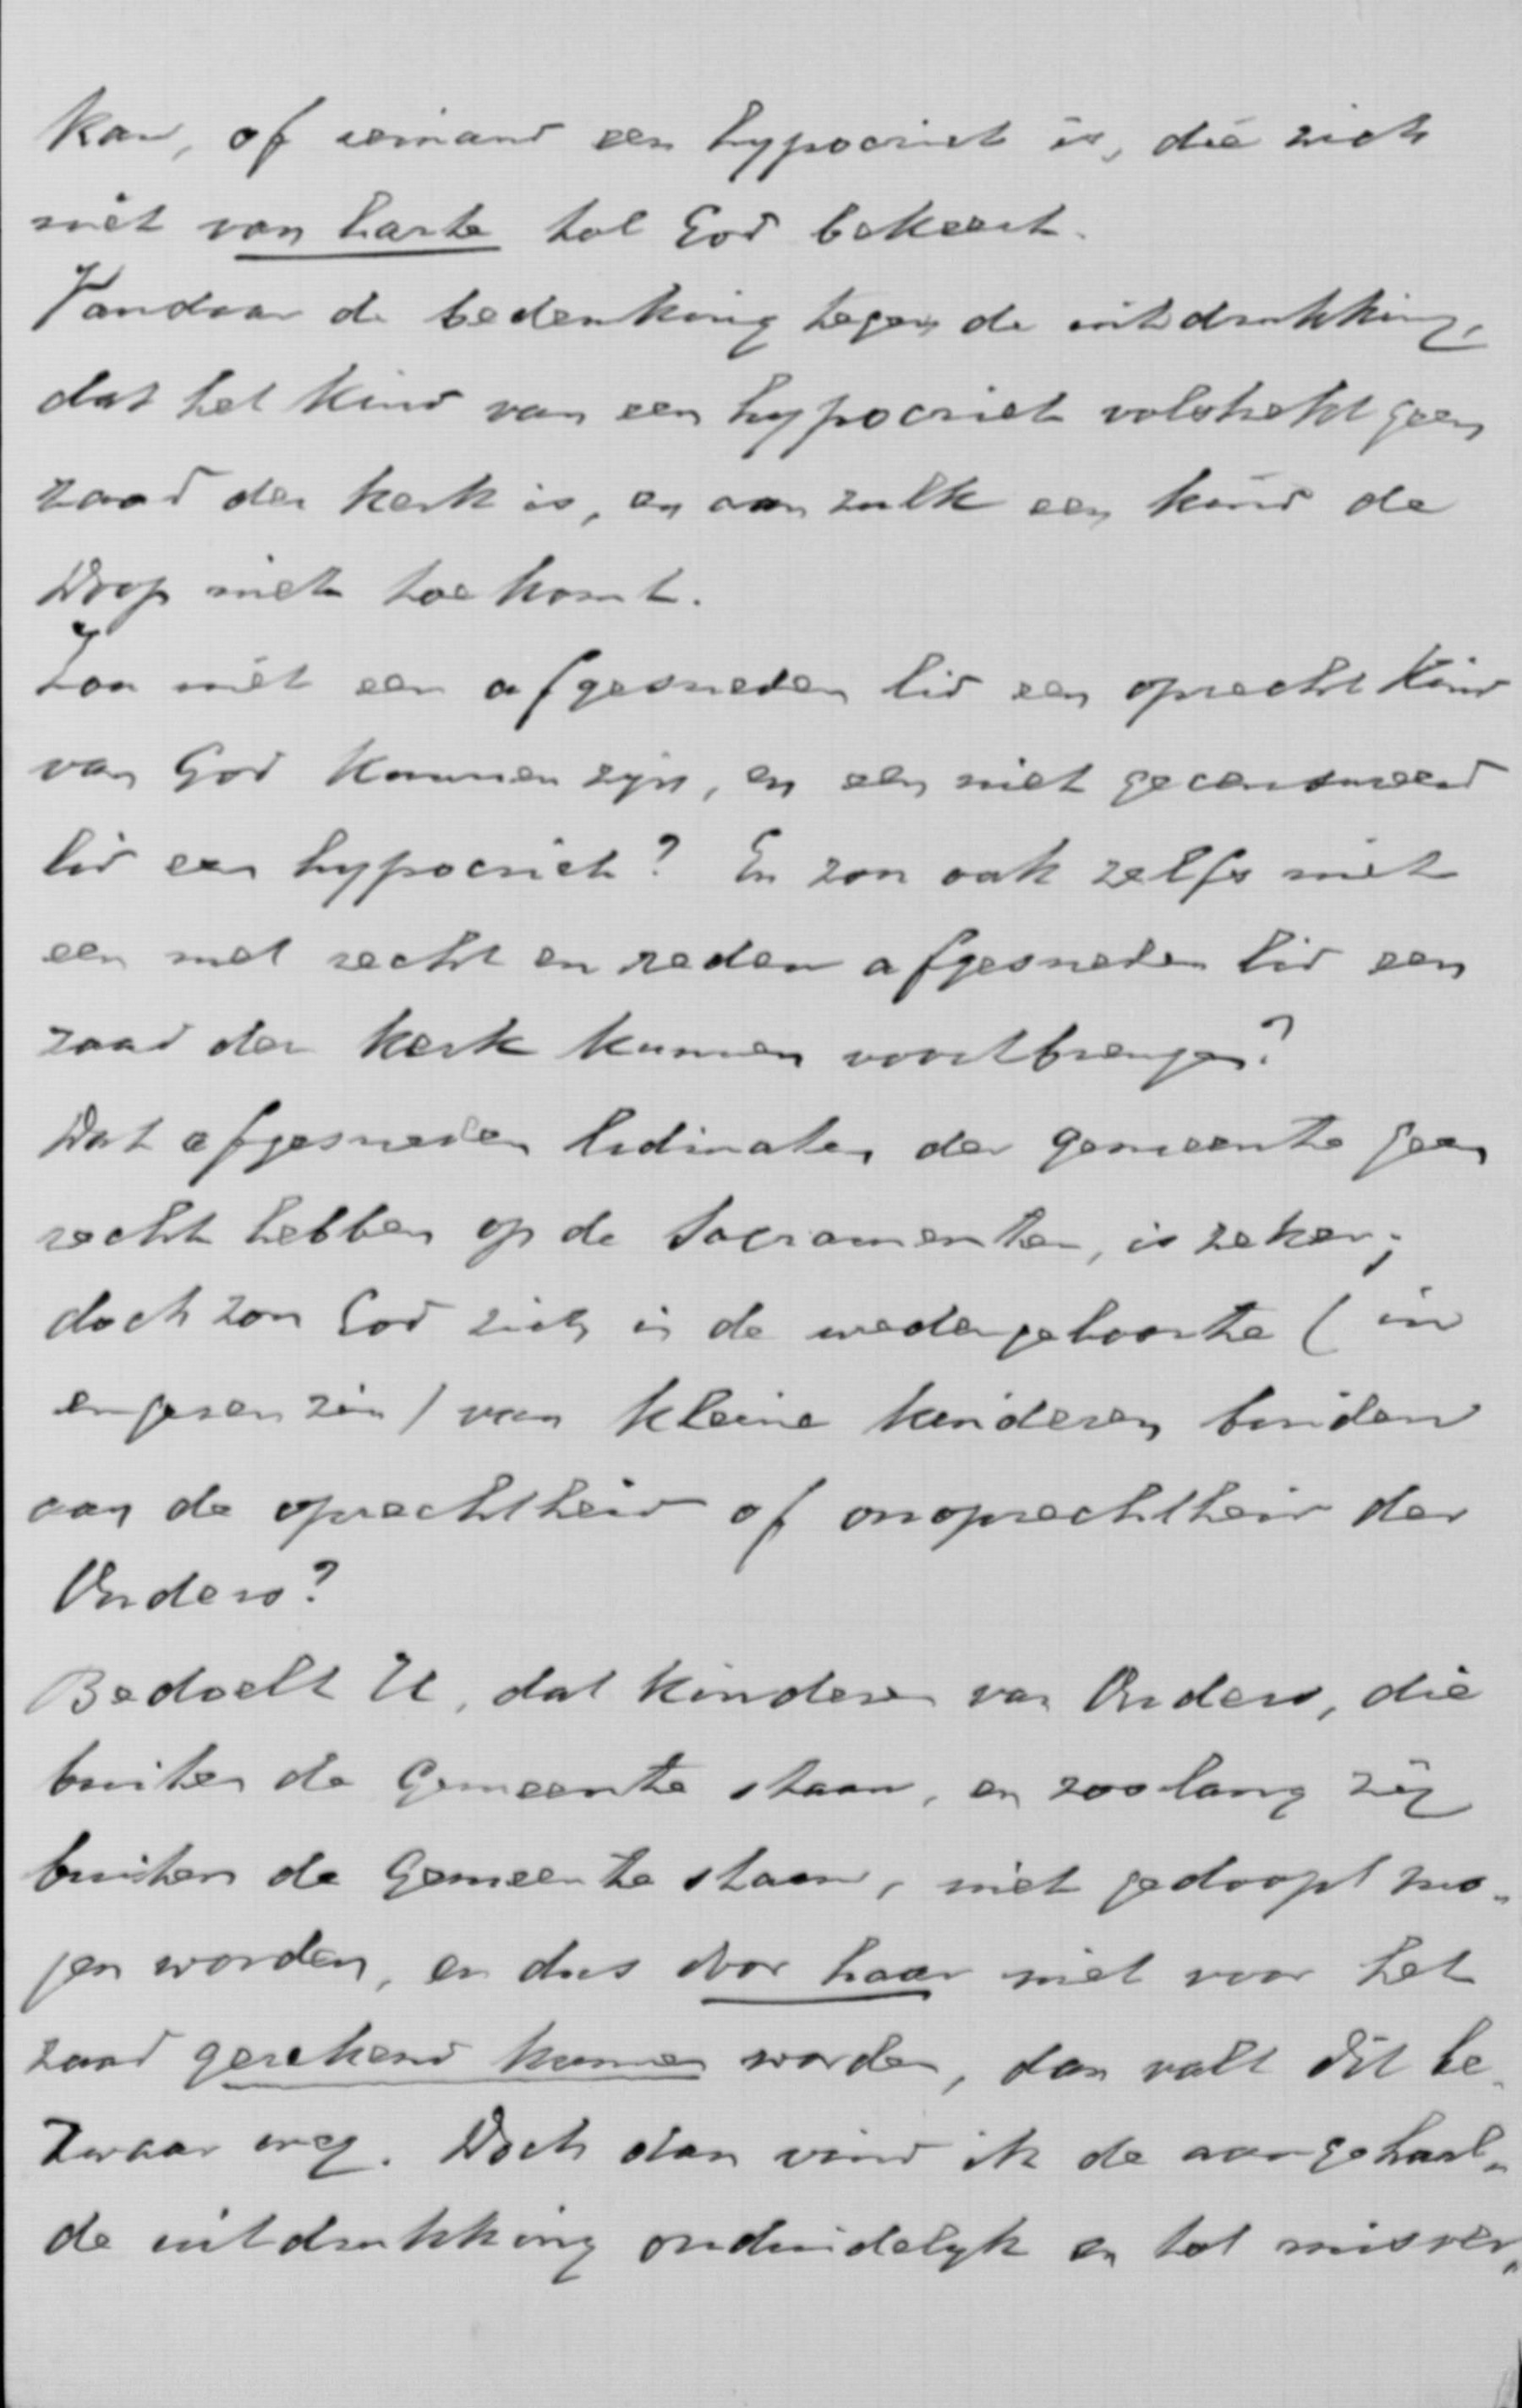 kan, of iemand een hypocriet is, die zich
niet van harte tot God bekeert.
Vandaar de bedenking tegen de uitdrukking,
dat het kind van een hypocriet volstrekt geen
zaad der kerk is, en aan zulk een kind de
Doop niet toekomt.
Zou niet een afgesneden lid een oprecht kind
van God kunnen zijn, en een niet gecensureerd
lid een hypocriet? En zou ook zelfs niet
een met recht en reden afgesneden lid een
zaad der kerk kunnen voortbrengen?
Dat afgesneden lidmaten der gemeente geen
recht hebben op de Sacramenten, is zeker;
doch zou God zich in de wedergeboorte (in
engeren zin) van kleine kinderen binden
aan de oprechtheid of onoprechtheid der
Ouders?
Bedoelt U, dat kinderen van Ouders, die
buiten de Gemeente staan, en zoolang zij
buiten de Gemeente staan, niet gedoopt mo-
gen worden, en dus door haar niet voor het
zaad gerekend kunnen worden, dan valt dit be-
zwaar weg. Doch dan vind ik de aangehaal-
de uitdrukking onduidelyk en tot misver-